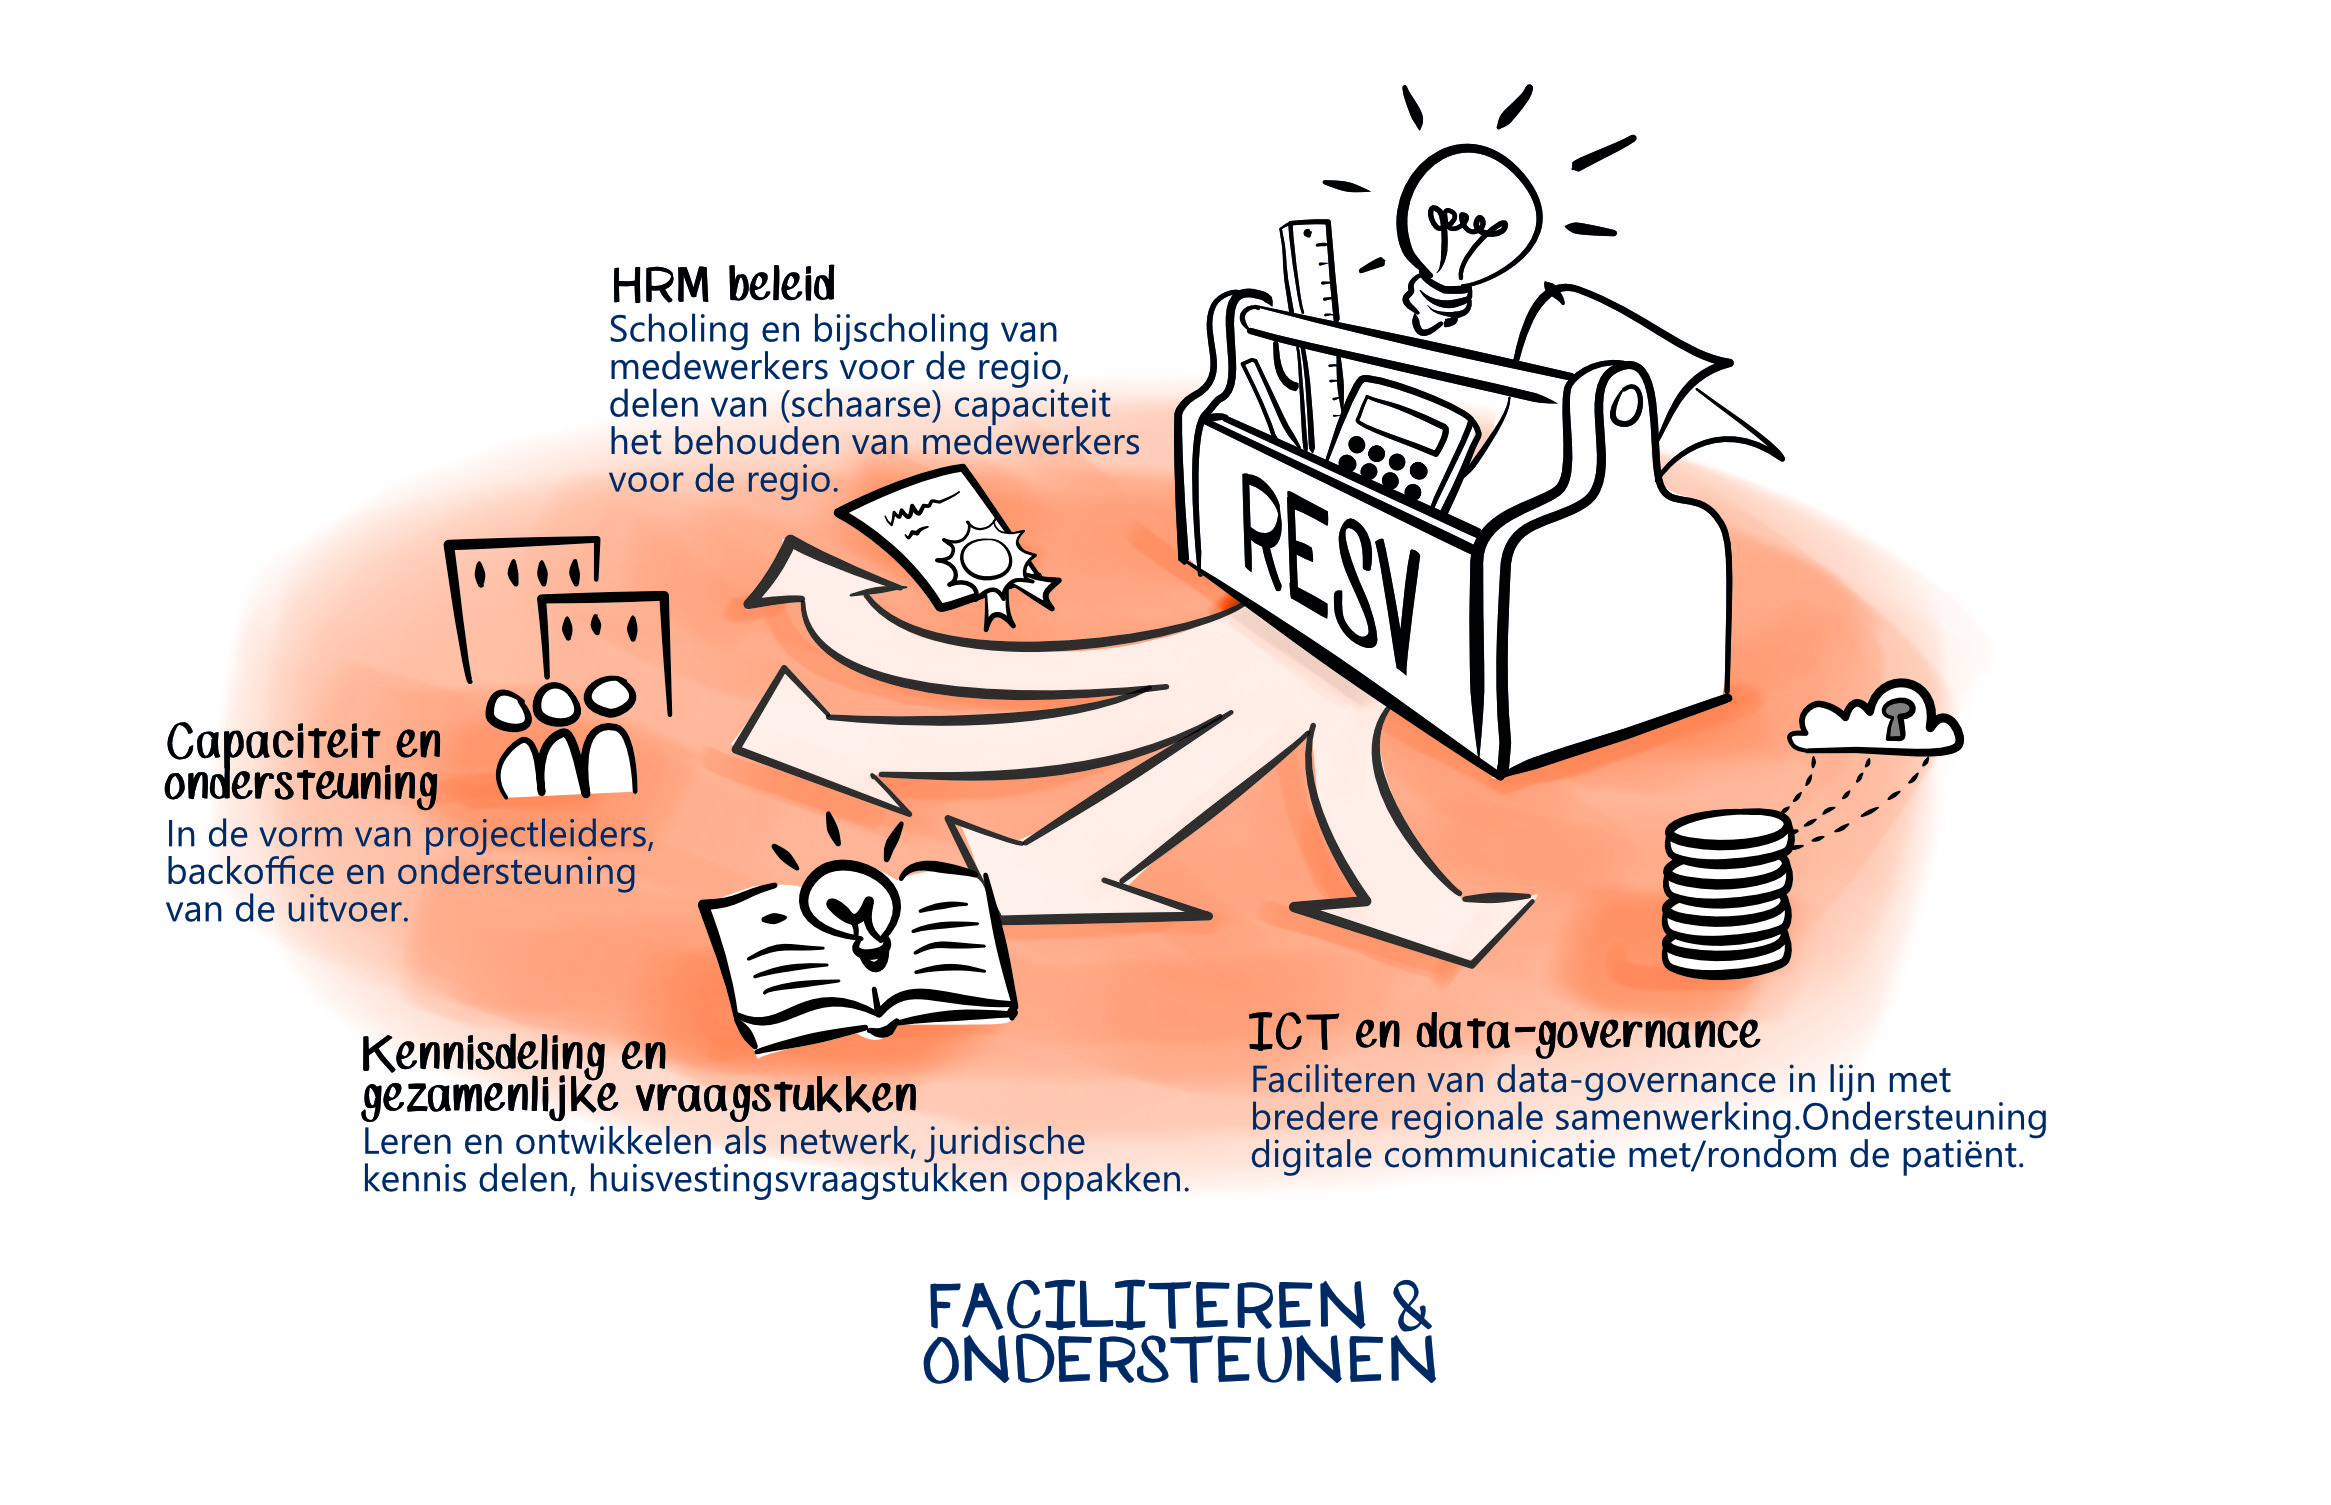 HRM beleid
Scholing en bijscholing van
medewerkers voor de regio,
delen van (schaarse) capaciteit
het behouden van medewerkers
voor de regio.
RESV
Capaciteit en
ondersteuning
In de vorm van projectleiders,
backoffice en ondersteuning
van de uitvoer.
Kennisdeling en
gezamenlijke vraagstukken
Leren en ontwikkelen als netwerk, juridische
kennis delen, huisvestingsvraagstukken oppakken.
ICT en data-governance
Faciliteren van data-governance in lijn met
bredere regionale samenwerking.Ondersteuning
digitale communicatie met/rondom de patiënt.
FACILITEREN &
ONDERSTEUNEN